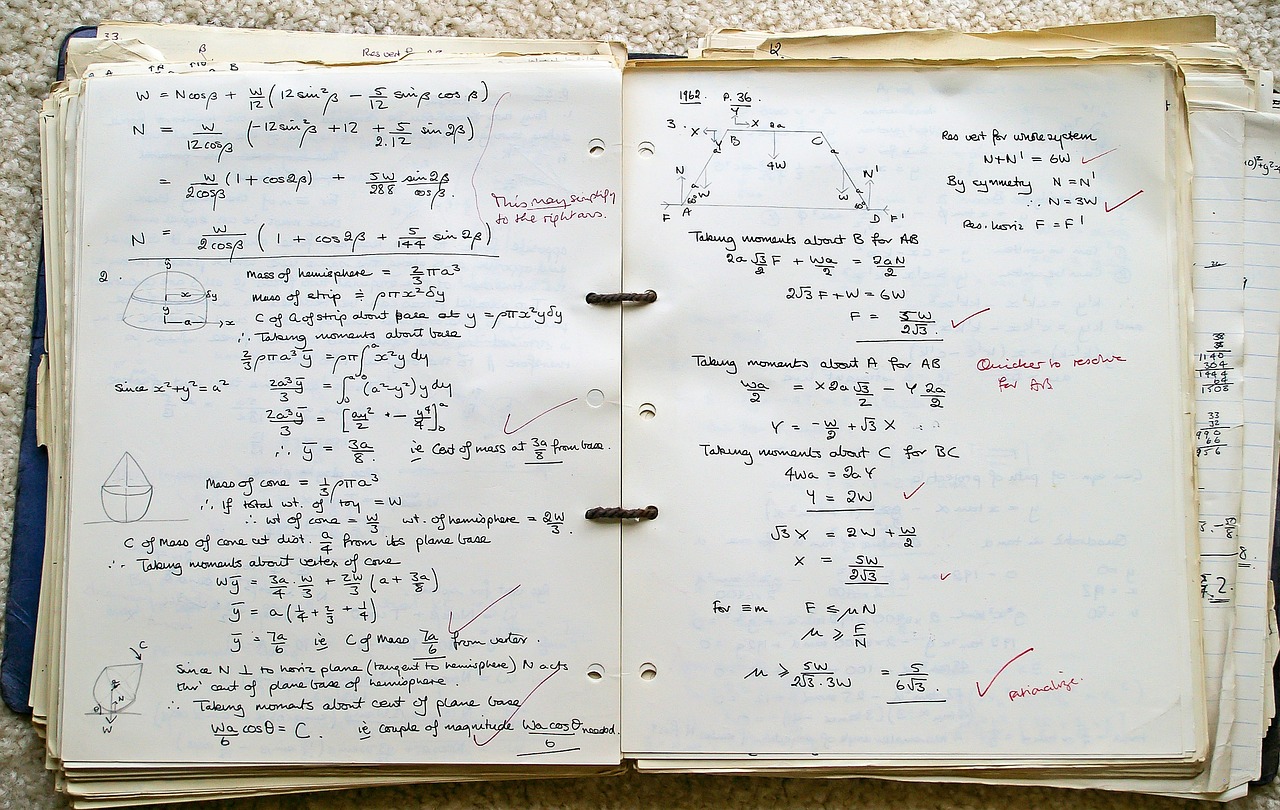 33.
β
Res vert
B
W = N cosβ + W/12 (12 sin²β − 5/12 sinβ cosβ)
N = W/12cosβ (−12 sin²β + 12 + 5/2.12 sin 2β)
= W/2cosβ (1 + cos2β) + 5W/288 sin2β/cosβ.
This may simplify
to the right ans.
N = W/2cosβ (1 + cos 2β + 5/144 sin 2β)
2.
y
x δy
y
a x
Mass of hemisphere = 2/3 πa³
Mass of strip ≑ ρπx²δy
C of G of strip about base at y = ρπx²yδy
∴ Taking moments about base
2/3 ρπa³ȳ = ρπ∫₀ᵃ x²y dy
Since x²+y²=a² 2a³ȳ/3 = ∫₀ᵃ (a²−y²)y dy
2a³ȳ/3 = [ay²/2 − y⁴/4]₀ᵃ
∴ ȳ = 3a/8 ie Cent of mass at 3a/8 from base.
Mass of cone = 1/3 ρπa³
∴ If total wt. of toy = W
∴ wt of cone = W/3 wt. of hemisphere = 2W/3.
C of Mass of cone at dist. a/4 from its plane base
∴ Taking moments about vertex of cone
Wȳ = 3a/4 . W/3 + 2W/3 (a + 3a/8)
ȳ = a(1/4 + 2/3 + 1/4)
ȳ = 7a/6 ie C of Mass 7a/6 from vertex.
C
N
θ
W
Since N ⊥ to horiz plane (tangent to hemisphere) N acts
thro' cent of plane base of hemisphere.
∴ Taking moments about cent of plane base
Wa/6 cosθ = C. ie couple of magnitude Wa cosθ/6 needed.
12.
1962. P. 36.
3. X Y X 2a
B C
Y a 4W a
N N'
a W W a
60° 60°
F A D F'
Res vert for whole system
N+N' = 6W
By symmetry N = N'
∴ N = 3W
Res. horiz F = F'
Taking moments about B for AB
2a √3/2 F + Wa/2 = 2aN/2
2√3 F + W = 6W
F = 5W/2√3.
Taking moments about A for AB
Quicker to resolve
for AB
Wa/2 = X 2a √3/2 − Y 2a/2
Y = −W/2 + √3 X
Taking moments about C for BC
4Wa = 2aY
Y = 2W
√3 X = 2W + W/2
X = 5W/2√3
For ≡m F ≤ μN
μ ≥ F/N
μ ≥ 5W/2√3.3W = 5/6√3.
rationalize.
38
38
1140
304
1444
64
1508
33
32
990
66
956